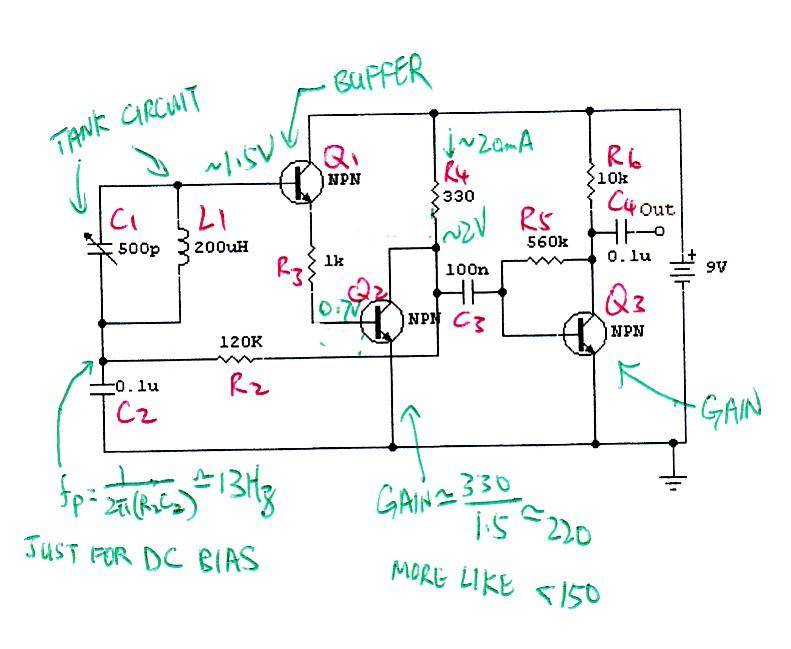 BUFFER
TANK CIRCUIT
~1.5V
Q1
NPN
i~20mA
R4
330
R6
10k
C4 Out
0.1u
C1
500p
L1
200uH
~2V
R5
560k
R3
1k
100n
C3
9V
+
Q2
0.7V
NPN
Q3
NPN
120K
R2
0.1u
C2
GAIN
fp = 1/2π(R2C2) ≃ 13Hz
JUST FOR DC BIAS
GAIN ≃ 330/1.5 ≃ 220
MORE LIKE <150